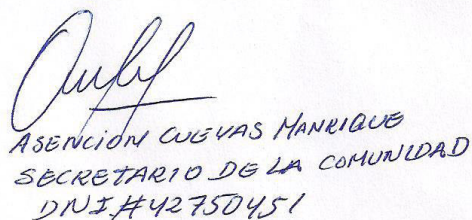 ASENCION CUEVAS MANRIQUE
SECRETARIO DE LA COMUNIDAD
DNI #42750451